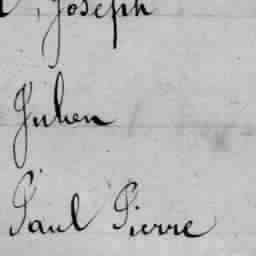 , Joseph
Julien
Paul Pierre